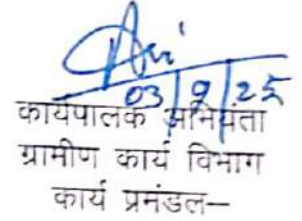 03/9/25
कार्यपालक अभियंता
ग्रामीण कार्य विभाग
कार्य प्रमंडल—